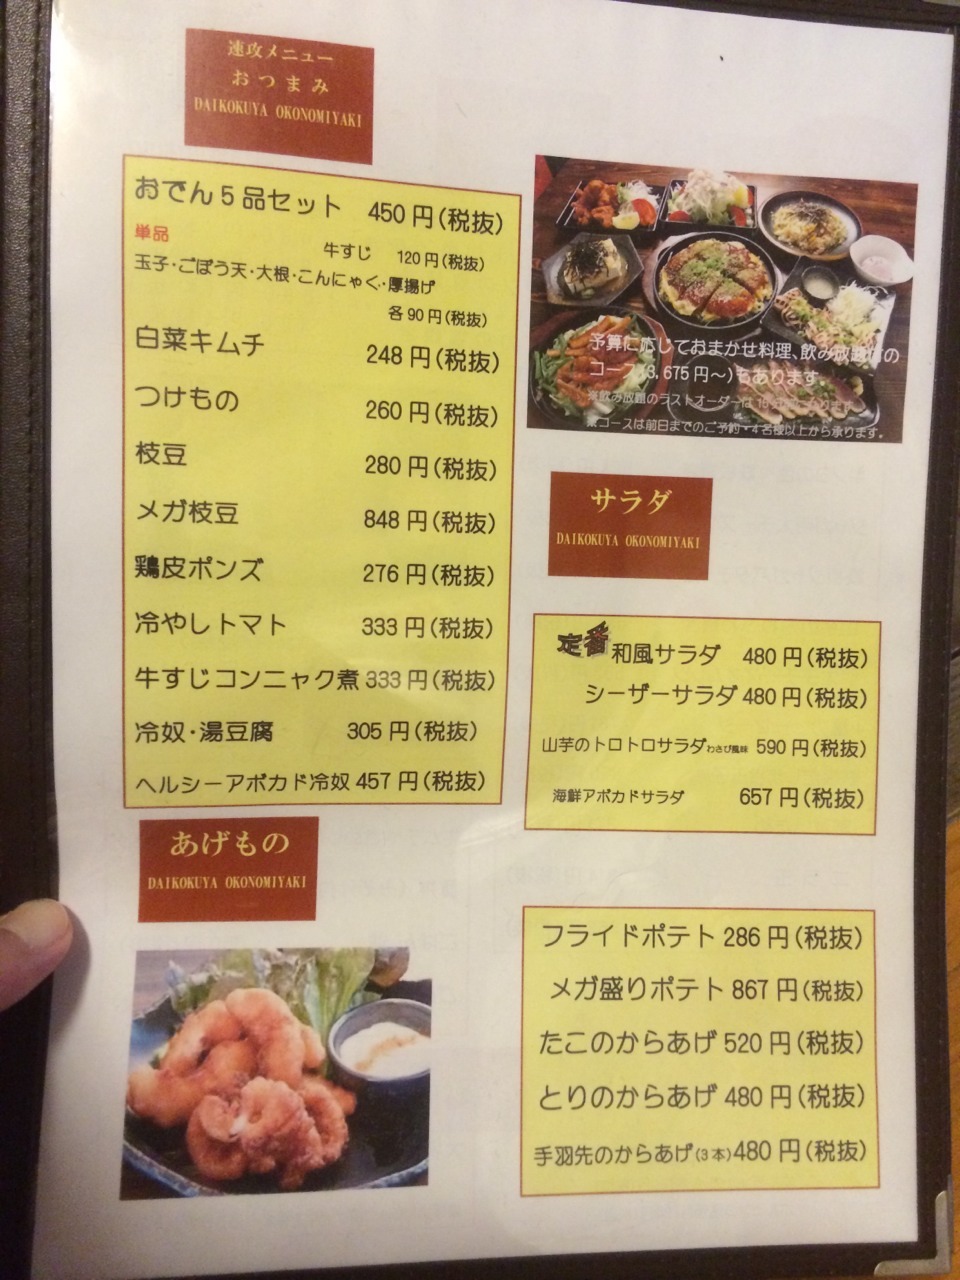 速攻メニュー
おつまみ
DAIKOKUYA OKONOMIYAKI
おでん5品セット 450円(税抜)
単品
牛すじ 120円(税抜)
玉子・ごぼう天・大根・こんにゃく・厚揚げ
各90円(税抜)
白菜キムチ 248円(税抜)
つけもの 260円(税抜)
枝豆 280円(税抜)
メガ枝豆 848円(税抜)
鶏皮ポンズ 276円(税抜)
冷やしトマト 333円(税抜)
牛すじコンニャク煮 333円(税抜)
冷奴・湯豆腐 305円(税抜)
ヘルシーアボカド冷奴 457円(税抜)
予算に応じておまかせ料理、飲み放題付の
コース(3,675円〜)もあります
※飲み放題のラストオーダーは
※コースは前日までのご予約・4名様以上から承ります。
サラダ
DAIKOKUYA OKONOMIYAKI
定番 和風サラダ 480円(税抜)
シーザーサラダ 480円(税抜)
山芋のトロトロサラダわさび風味 590円(税抜)
海鮮アボカドサラダ 657円(税抜)
あげもの
DAIKOKUYA OKONOMIYAKI
フライドポテト 286円(税抜)
メガ盛りポテト 867円(税抜)
たこのからあげ 520円(税抜)
とりのからあげ 480円(税抜)
手羽先のからあげ(3本) 480円(税抜)